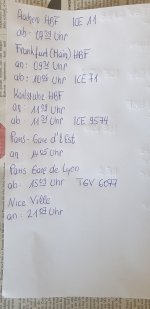 Aachen HBF ICE 11
ab: Uhr
Frankfurt (Main) HBF
an: Uhr
ab: Uhr ICE 71
Karlsruhe HBF
an: 11 Uhr
ab: 11 Uhr ICE 9574
Paris - Gare d'Est
an: Uhr
Paris Gare de Lyon
ab: Uhr TGV 6077
Nice Ville
an: 21 Uhr